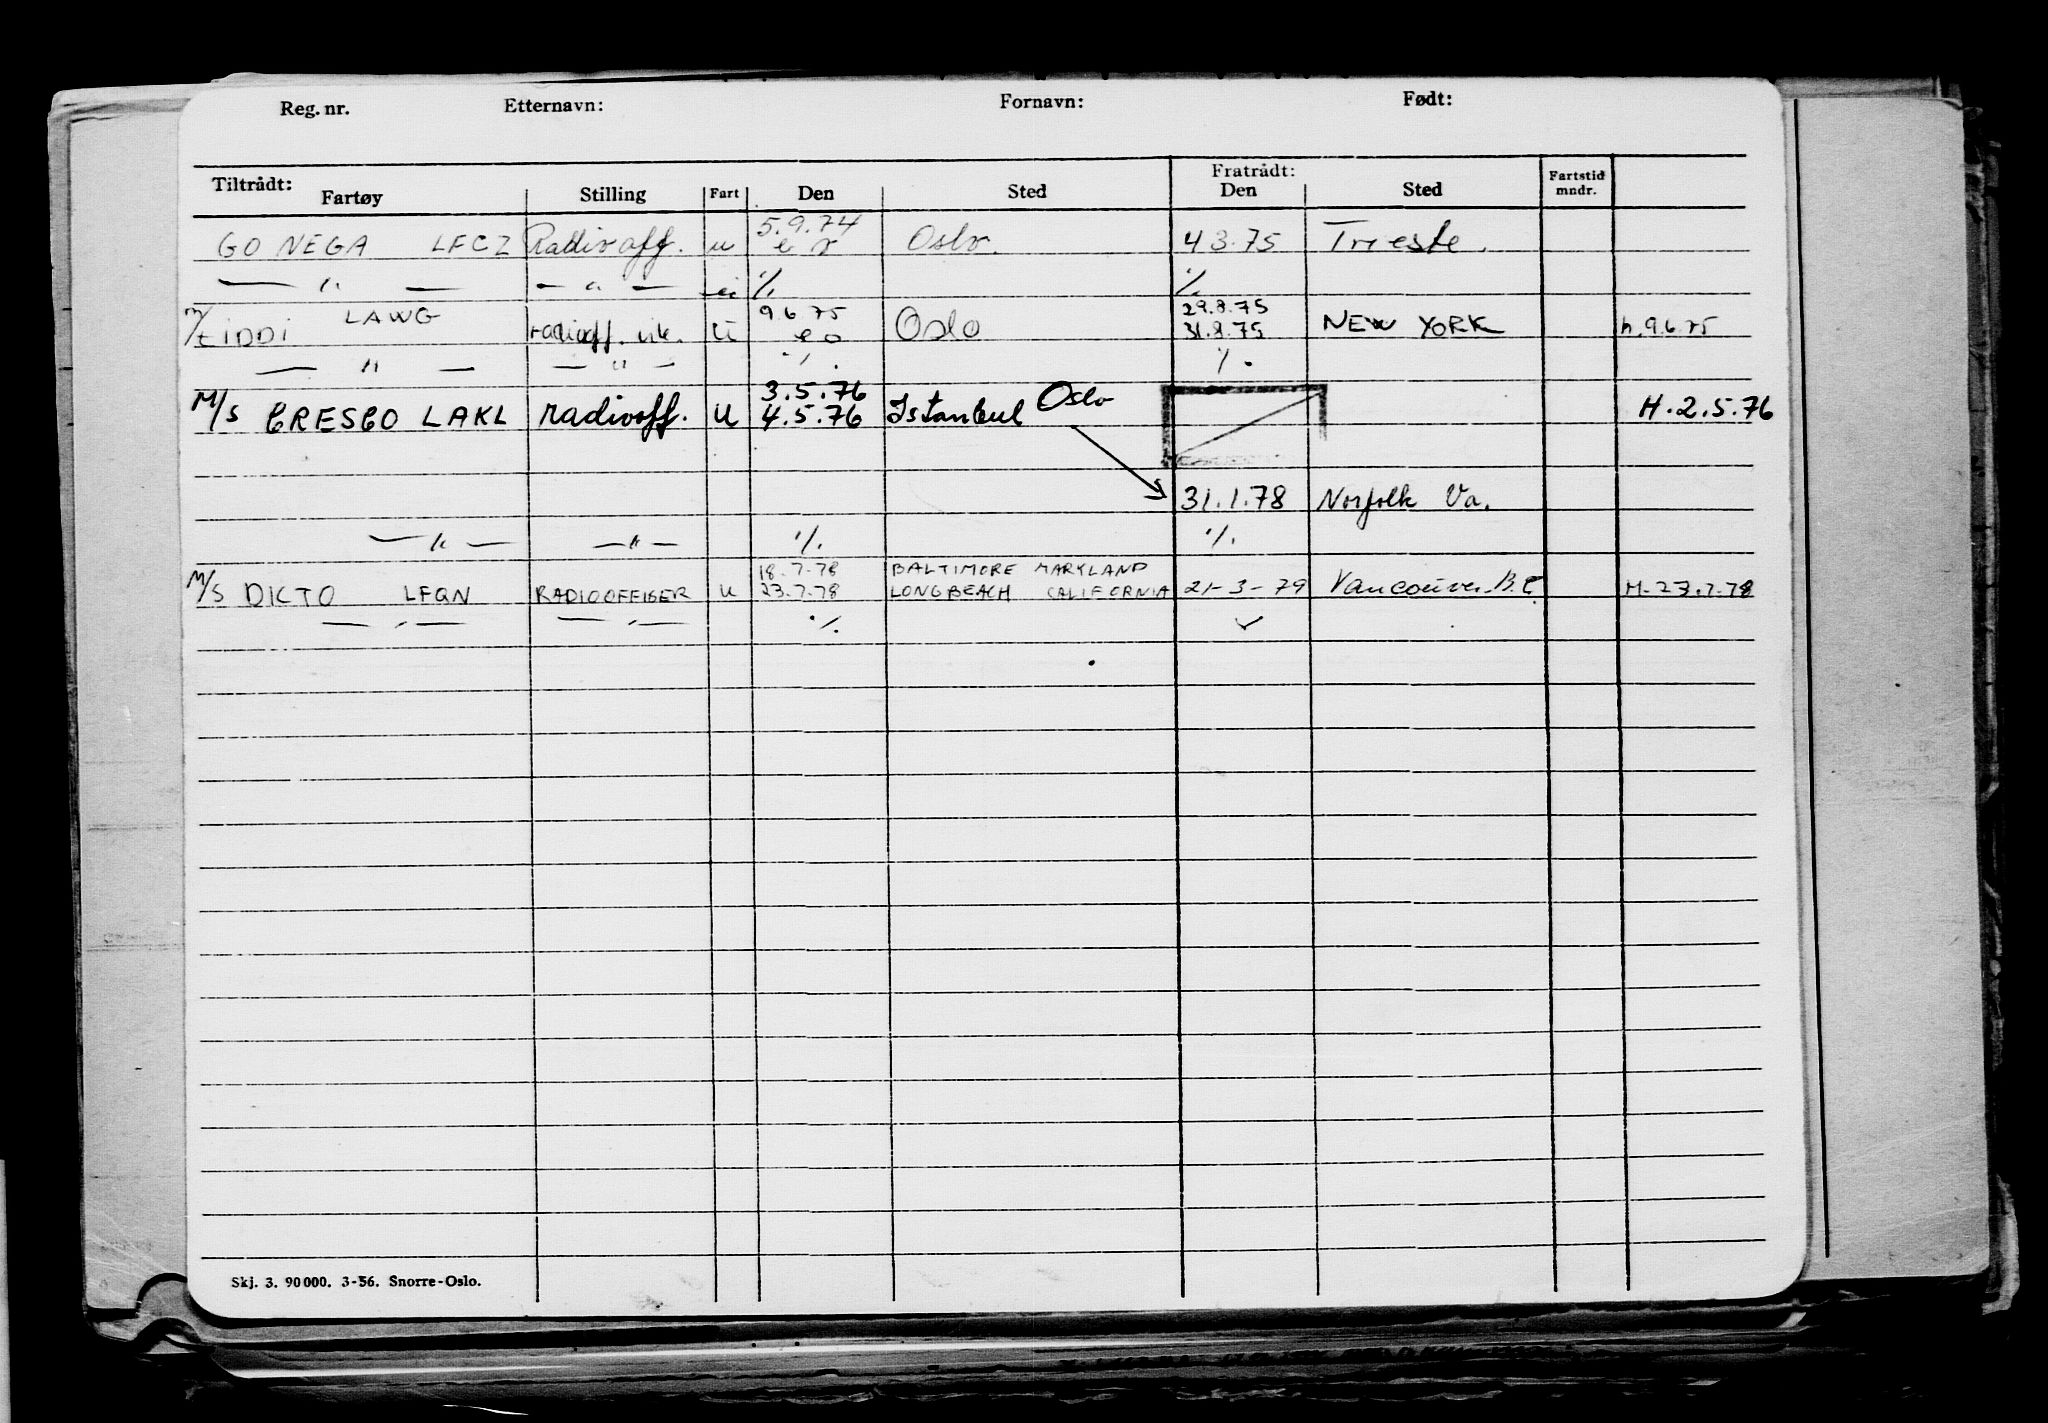 Reg. nr. Etternavn: Fornavn: Født:
Tiltrådt: Fratrådt:
Fartøy Stilling Fart Den Sted Den Sted Fartstid mndr.
5.9.74
GO NEGA LFCZ Radiooff. u Oslo. 4 3.75 Trieste.
— " — — " — ·/. ·/.
LAWG 9.6.75 29.8.75
M/ radiooff. vik. U Oslo 31.8.75 NEW YORK h. 9.6.75
— " — — " — ·/. ·/.
3.5.76 Oslo
M/S LAKL radiooff. U 4.5.76 Istanbul H. 2.5.76
31.1.78 Norfolk Va.
— " — — " — ·/. ·/.
18.7.78 BALTIMORE MARYLAND
M/S DICTO LFQN RADIOOFFISER U 23.7.78 LONGBEACH CALIFORNIA 21-3-79 Vancouver. B.C H. 23.7.78
— " — — " — ·/.
Skj. 3. 90 000. 3-56. Snorre-Oslo.